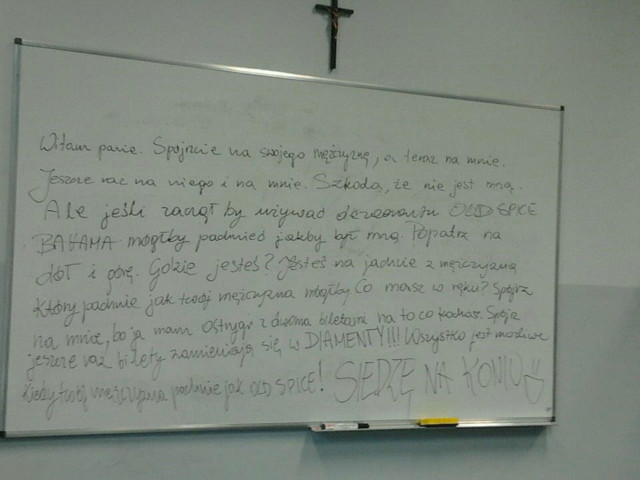 Witam panie. Spójrzcie na swojego mężczyznę, a teraz na mnie.
Jeszcze raz na niego i na mnie. Szkoda, że nie jest mną.
Ale jeśli zaczął by używać dezodorantu OLD SPICE
BAHAMA mógłby padnieć jakby był mną. Popatrz na
dół i górę. Gdzie jesteś? Jesteś na jachcie z mężczyzną
który padnie jak twój mężczyzna mógłby. Co masz w ręku? Spójrz
na mnie, bo ja mam ostrygę z dwoma biletami na to co kochasz. Spójrz
jeszcze raz bilety zamieniają się w DIAMENTY!!! Wszystko jest możliwe
kiedy twój mężczyzna padnie jak OLD SPICE! SIEDZĘ NA KONIU